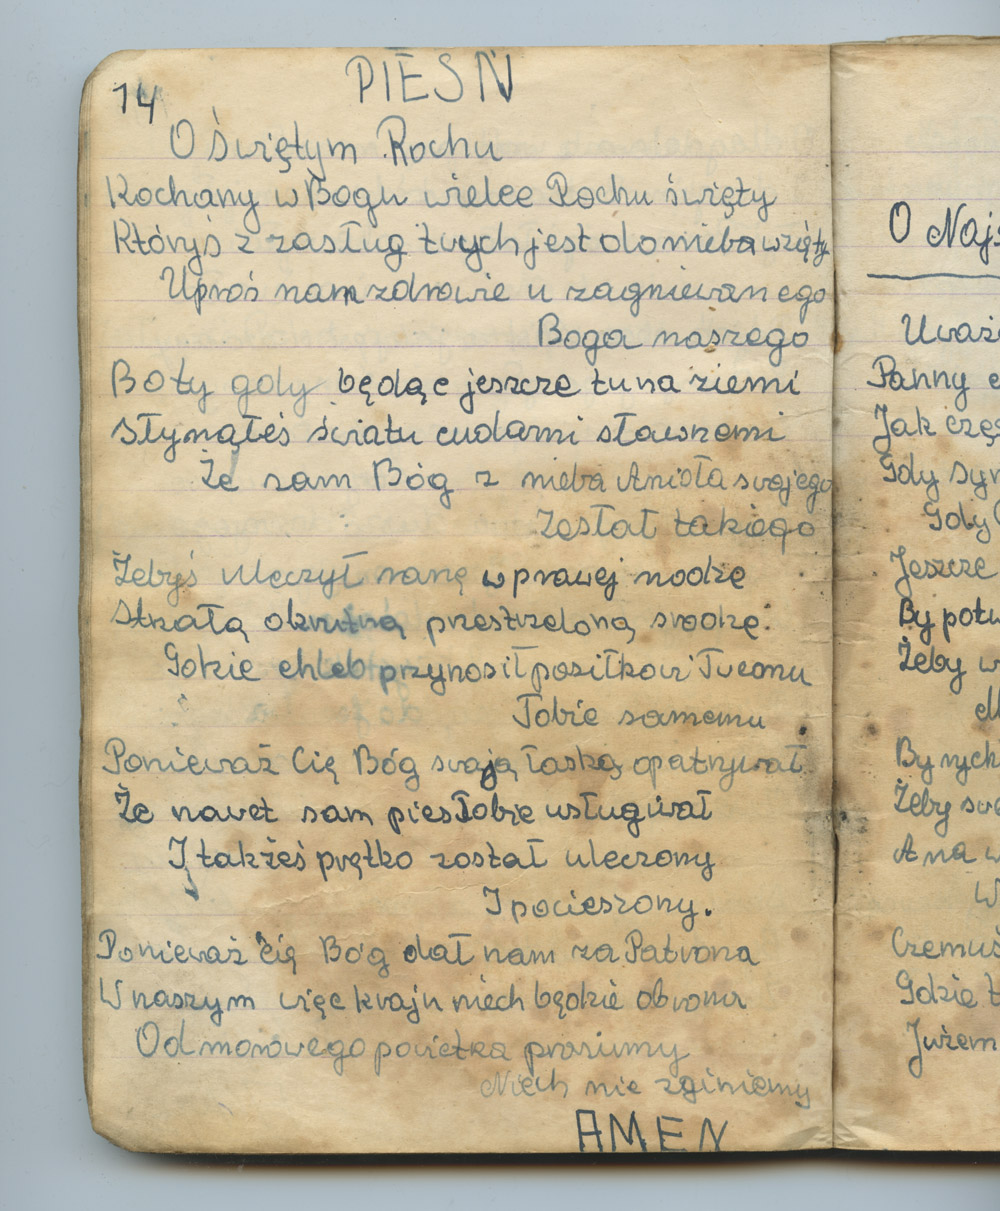 14
PIEŚŃ
O świętym Rochu
Kochany w Bogu wielce Rochu święty
Któryś z zasług twych jest do nieba wzięty
Uproś nam zdrowie u zagniewanego
Boga naszego
Bo ty gdy będąc jeszcze tu na ziemi
Słynąłeś światu cudami sławnemi
Że sam Bóg z nieba Anioła swojego
Zesłał takiego
Żebyś uleczył ranę w prawej nodze
Strzałą okrutną przestrzeloną srodze.
Gdzie chleb przynosił posiłkowi Twemu
Tobie samemu
Ponieważ Cię Bóg swoją łaską opatrywał
Że nawet sam pies Tobie usługiwał
I takżeś prętko został uleczony
I pocieszony.
Ponieważ cię Bóg dał nam za Patrona
W naszym więc kraju niech będzie obrona
Od morowego powietrza prosiumy
Niech nie zginiemy
AMEN
O Najś
Uważ
Panny
Jak częs
Gdy syn
Gdy
Jeszcze
By potw
Żeby w
By nych
Żeby swo
A na w
W
Czemuś
Gdzie t
Jużem